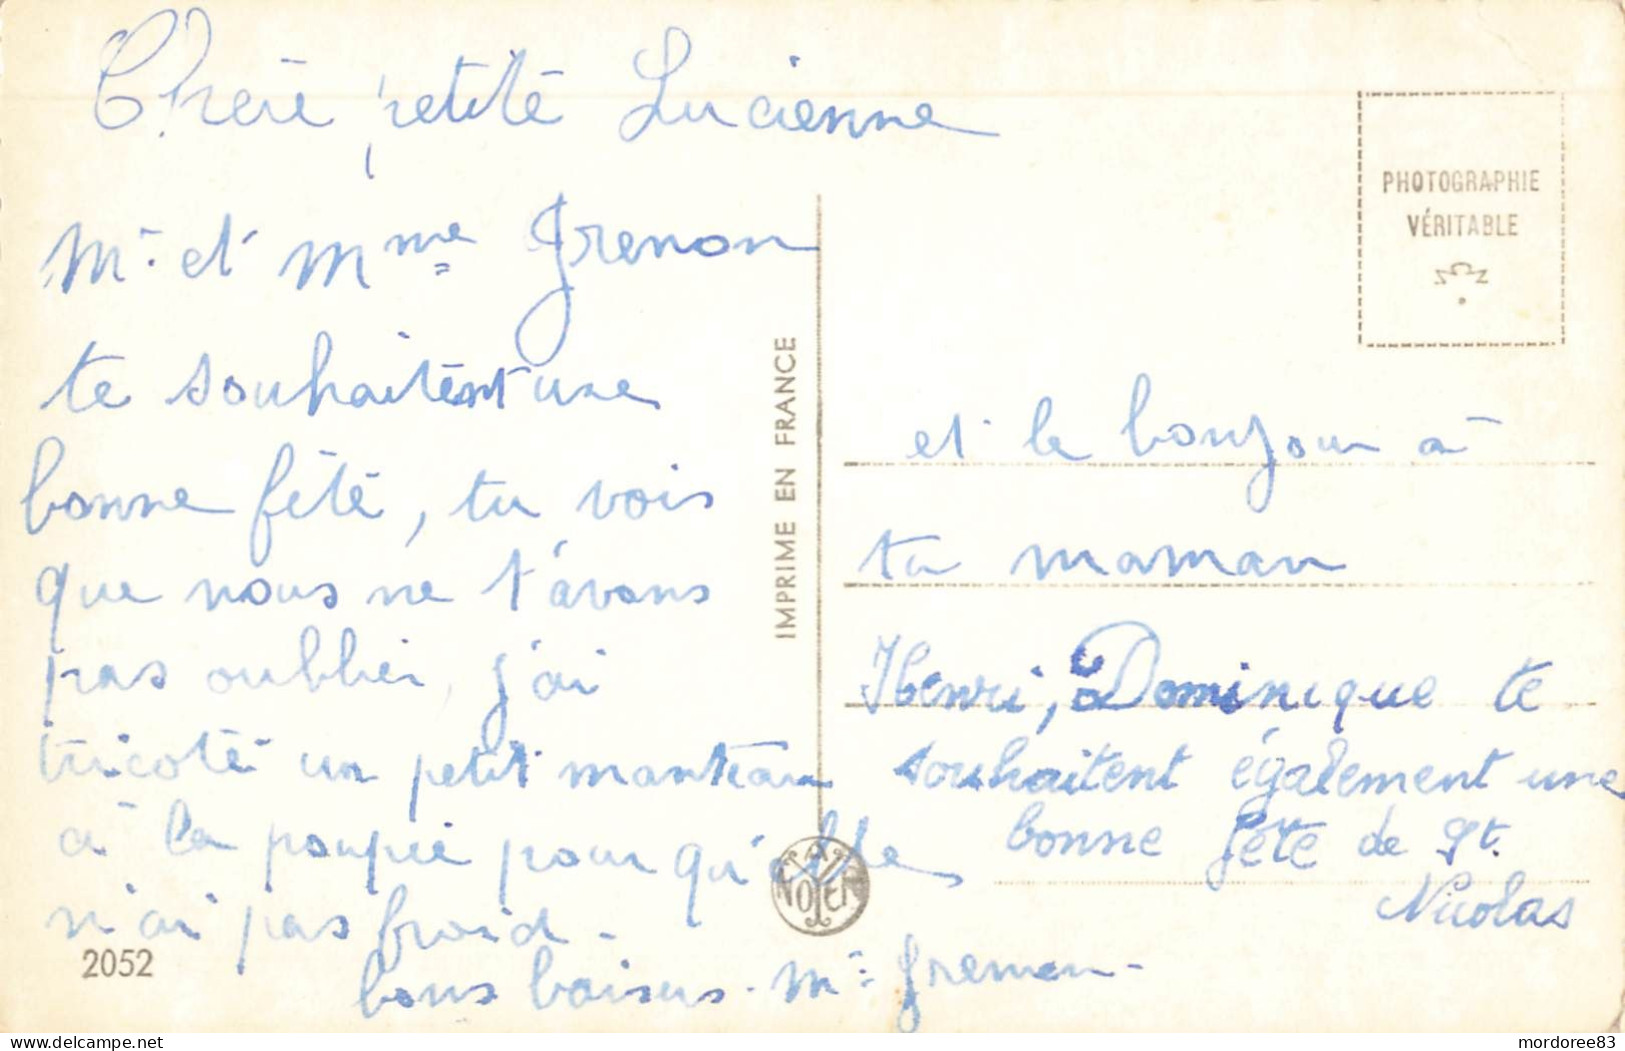 Chère petite Lucienne
Mr. et Mme Grenon
te souhaitent une
bonne fête, tu vois
que nous ne t'avons
pas oublier, j'ai
tricoté un petit manteau
à la poupée pour qu'elle
n'ai pas froid.
bons baisers. Mr. Grenon-
2052
IMPRIME EN FRANCE
NOYER
PHOTOGRAPHIE
VÉRITABLE
et le bonjour à
ta maman
Henri, Dominique te
souhaitent également une
bonne fête de St.
Nicolas
mordoree83
delcampe.net